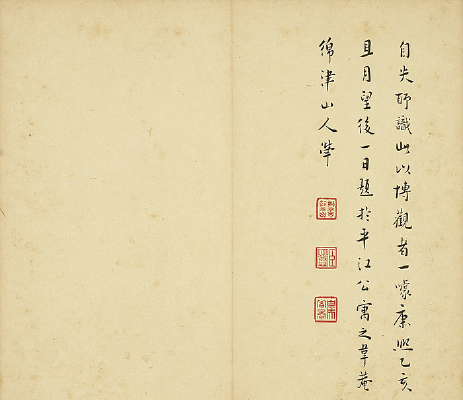 自失耶識此以博觀者一噱康熙乙亥
且月望後一日題於平江公寓之草菴
綿津山人犖